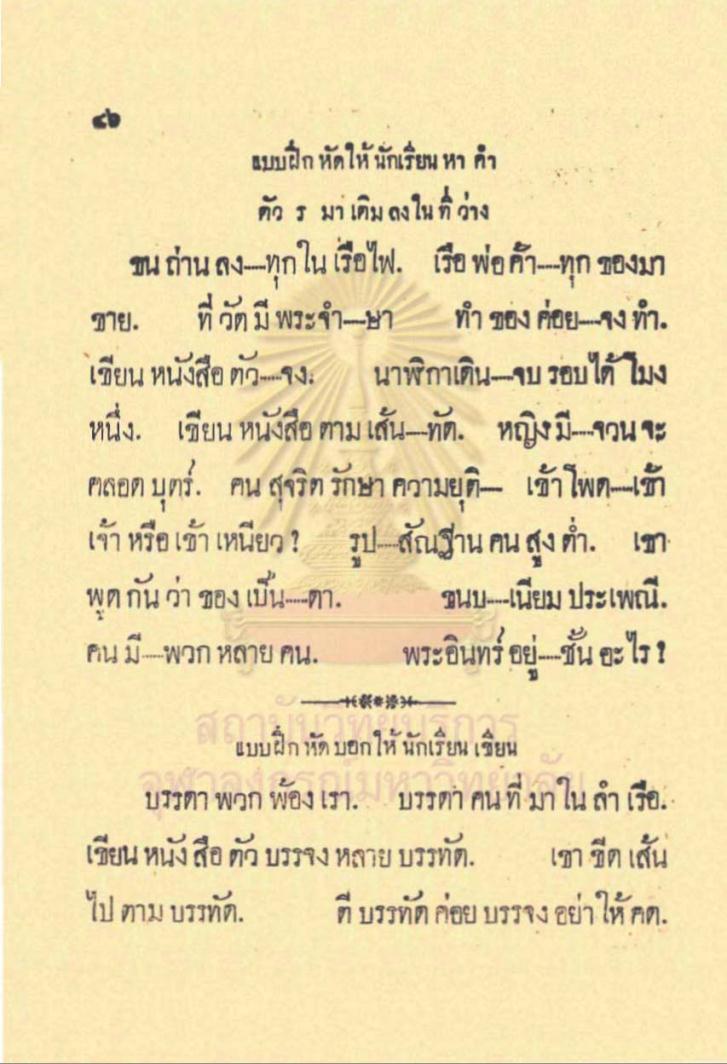 ๘๖
แบบฝึก หัดให้ นักเรียน หา คำ
ตัว ร มา เติม ลงใน ที่ ว่าง
ขน ถ่าน ลง—ทุก ใน เรือไฟ. เรือ พ่อ ค้า—ทุก ของมา
ขาย. ที่ วัด มี พระจำ—ษา ทำ ของ ค่อย—จง ทำ.
เขียน หนังสือ ตัว—จง. นาฬิกาเดิน—จบ รอบได้ โมง
หนึ่ง. เขียน หนังสือ ตาม เส้น—ทัด. หญิง มี—จวน จะ
คลอด บุตร์. คน สุจริต รักษา ความยุติ— เข้าโพด—เข้า
เจ้า หรือ เข้า เหนียว? รูป—สัณฐาน คน สูง ต่ำ. เขา
พูด กัน ว่า ของ เป็น—ดา. ขนบ—เนียม ประเพณี.
คน มี—พวก หลาย คน. พระอินทร์ อยู่—ชั้น อะไร?
แบบฝึก หัด บอกให้ นักเรียน เขียน
บรรดา พวก พ้อง เรา. บรรดา คน ที่ มา ใน ลำ เรือ.
เขียน หนัง สือ ตัว บรรจง หลาย บรรทัด. เขา ขีด เส้น
ไป ตาม บรรทัด. ตี บรรทัด ค่อย บรรจง อย่า ให้ คด.
สถาบันวิทยบริการ
จุฬาลงกรณ์มหาวิทยาลัย